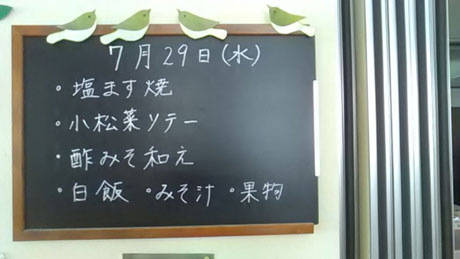 7月29日(水)
・塩ます焼
・小松菜ソテー
・酢みそ和え
・白飯 ・みそ汁 ・果物